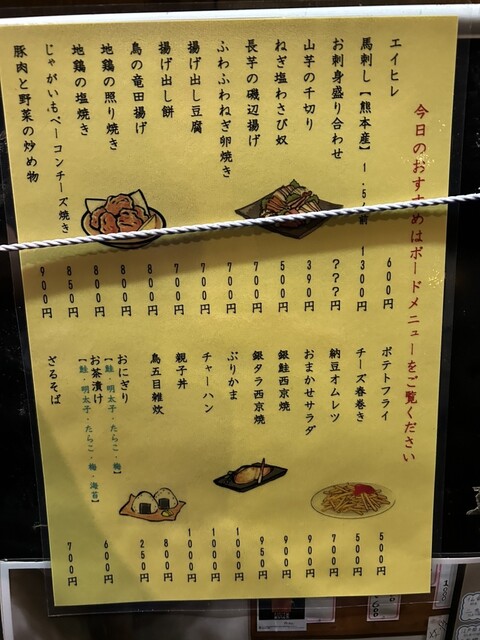 今日のおすすめはボードメニューをご覧ください
エイヒレ 600円
馬刺し【熊本産】1.5人前 1300円
お刺身盛り合わせ ???円
山芋の千切り 390円
ねぎ塩わさび奴 500円
長芋の磯辺揚げ 700円
ふわふわねぎ卵焼き 700円
揚げ出し豆腐 700円
揚げ出し餅 700円
鳥の竜田揚げ 800円
地鶏の照り焼き 800円
地鶏の塩焼き 800円
じゃがいもベーコンチーズ焼き 850円
豚肉と野菜の炒め物 900円
ポテトフライ 500円
チーズ春巻き 500円
納豆オムレツ 700円
おまかせサラダ 900円
銀鮭西京焼 900円
銀タラ西京焼 950円
ぶりかま 1000円
チャーハン 1000円
親子丼 1000円
鳥五目雑炊 800円
おにぎり 250円
【鮭・明太子・たらこ・梅】
お茶漬け 600円
【鮭・明太子・たらこ・梅・海苔】
ざるそば 700円